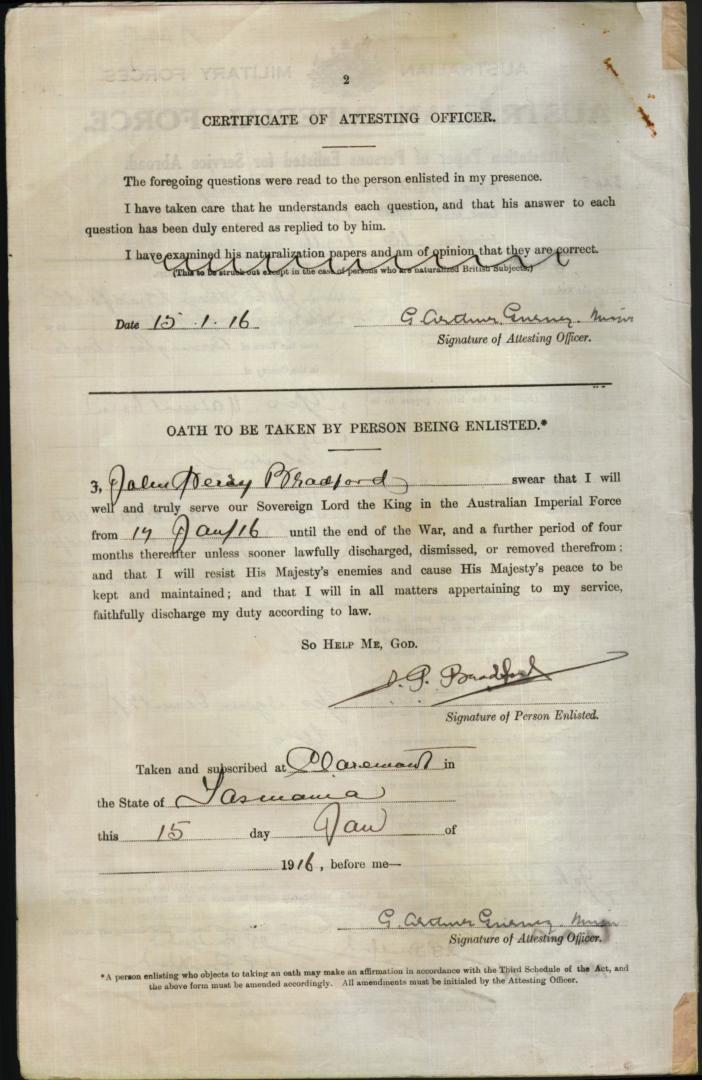 2
CERTIFICATE OF ATTESTING OFFICER.
The foregoing questions were read to the person enlisted in my presence.
I have taken care that he understands each question, and that his answer to each
question has been duly entered as replied to by him.
I have examined his naturalization papers and am of opinion that they are correct.
(This to be struck out except in the case of persons who are naturalized British Subjects.)
Date 15.1.16 G. Major
Signature of Attesting Officer.
OATH TO BE TAKEN BY PERSON BEING ENLISTED.*
I, John Percy Bradford swear that I will
well and truly serve our Sovereign Lord the King in the Australian Imperial Force
from 17 Jan/16 until the end of the War, and a further period of four
months thereafter unless sooner lawfully discharged, dismissed, or removed therefrom;
and that I will resist His Majesty's enemies and cause His Majesty's peace to be
kept and maintained; and that I will in all matters appertaining to my service,
faithfully discharge my duty according to law.
SO HELP ME, GOD.
J. P. Bradford
Signature of Person Enlisted.
Taken and subscribed at Claremont in
the State of Tasmania
this 15 day Jan of
1916, before me—
G. Major
Signature of Attesting Officer.
*A person enlisting who objects to taking an oath may make an affirmation in accordance with the Third Schedule of the Act, and
the above form must be amended accordingly. All amendments must be initialed by the Attesting Officer.